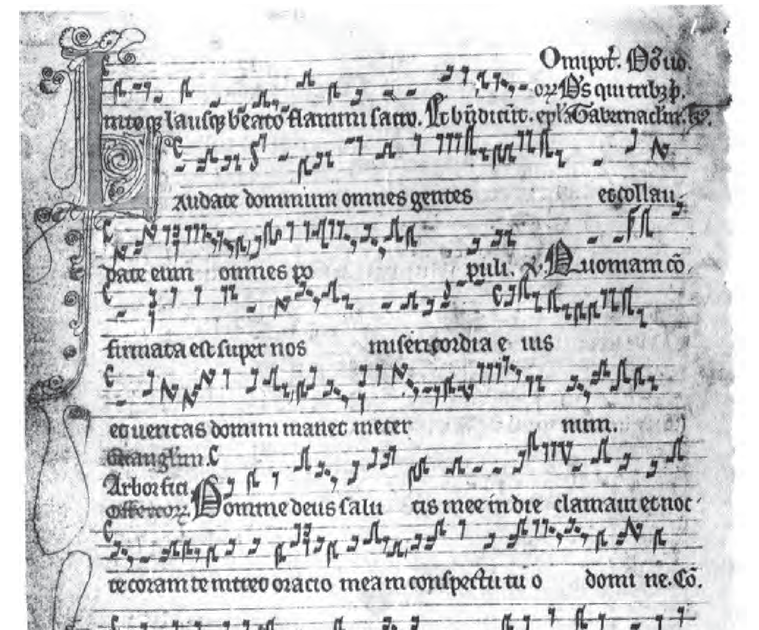 Omnipot.
lausq; beato flamini sacro.
Laudate dominum omnes gentes et collau
date eum omnes po puli. V. Quoniam co
firmata est super nos misericordia e ius
et ueritas domini manet in eter num.
Arbor fici
Offertor. Domine deus salu tis mee in die clamaui et noc
te coram te intret oracio mea in conspectu tu o domi ne. Co.